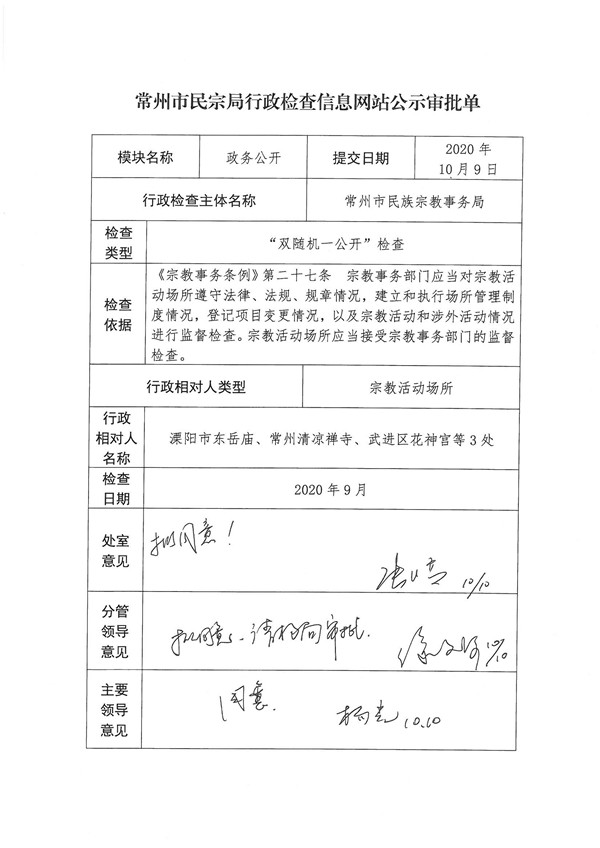 常州市民宗局行政检查信息网站公示审批单
模块名称 政务公开 提交日期 2020年
10月9日
行政检查主体名称 常州市民族宗教事务局
检查
类型
“双随机一公开”检查
检查
依据
《宗教事务条例》第二十七条 宗教事务部门应当对宗教活
动场所遵守法律、法规、规章情况，建立和执行场所管理制
度情况，登记项目变更情况，以及宗教活动和涉外活动情况
进行监督检查。宗教活动场所应当接受宗教事务部门的监督
检查。
行政相对人类型 宗教活动场所
行政
相对人
名称
溧阳市东岳庙、常州清凉禅寺、武进区花神宫等3处
检查
日期
2020年9月
处室
意见
拟同意！
10/10
分管
领导
意见
拟同意、请杨局审批.
10/10
主要
领导
意见
同意.
10.10